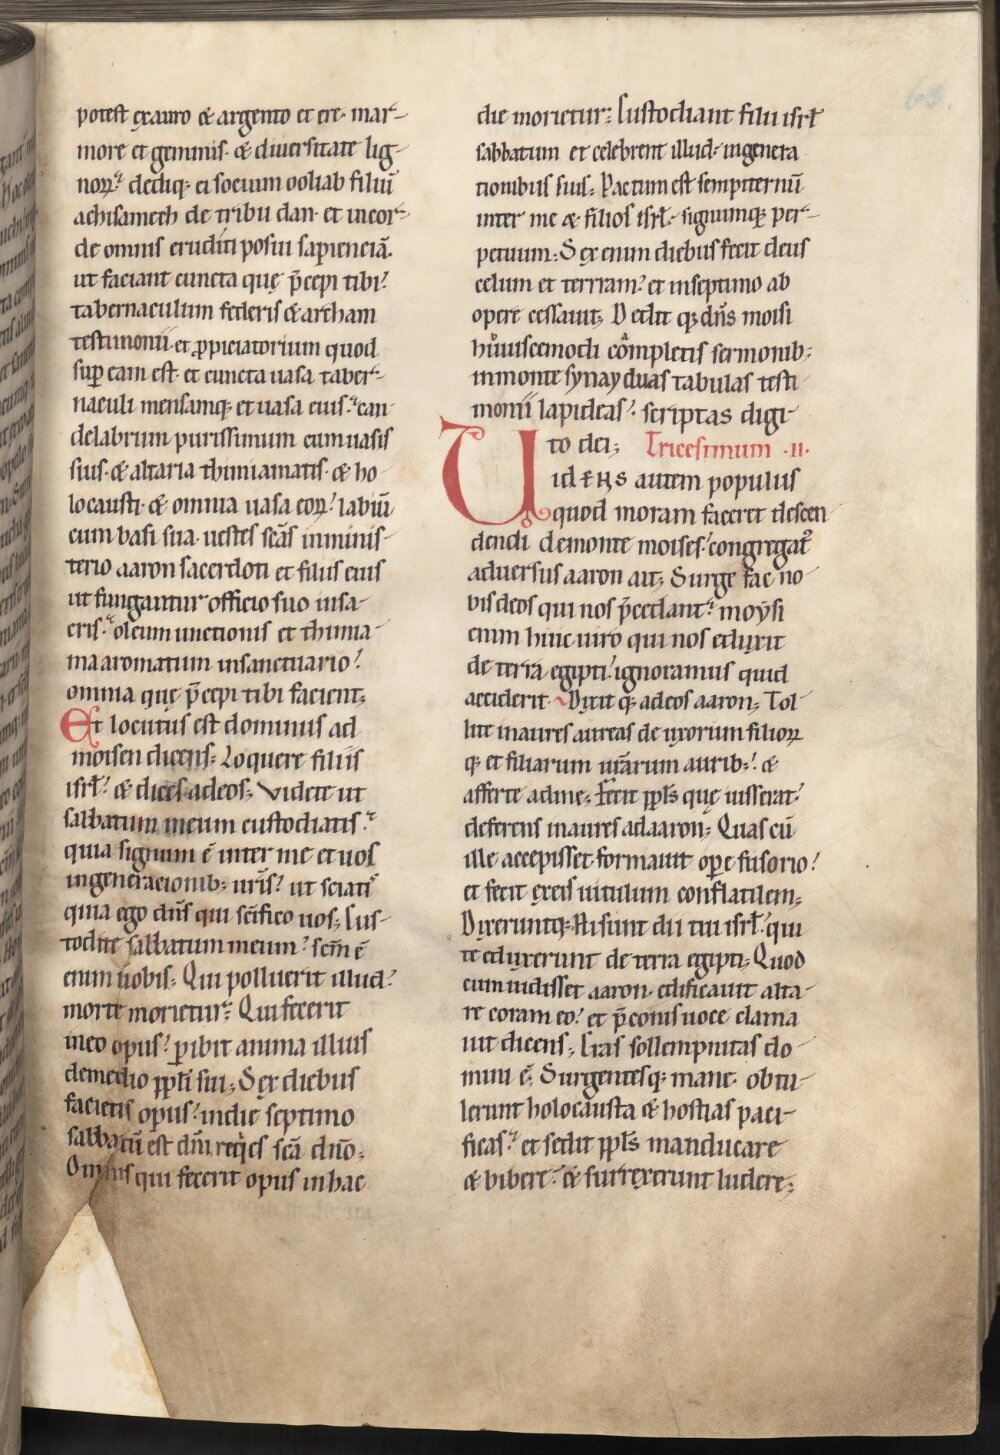 63.
potest ex auro & argento et ere· mar-
more et gemmis· & diuersitate lig-
noꝝ· dediq; ei socium ooliab filiū
achisamech de tribu dan· et in cor-
de omnis eruditi posui sapienciā·
ut faciant cuncta quę p̄cepi tibi·
tabernaculum federis & archam
testimonii· et ꝓpiciatorium quod
suꝑ eam est· et cuncta uasa taber-
naculi mensamq; et uasa eius· can-
delabrum purissimum cum uasis
suis· & altaria thimiamatis· & ho-
locausti· & omnia uasa eoꝝ· labiū
cum basi sua· uestes scās in minis-
terio aaron sacerdoti et filiis eius
ut fungantur officio suo in sa-
cris· oleum unctionis et thimia-
ma aromatum in sanctuario·
omnia quę p̄cepi tibi facient;
Et locutus est dominus ad
moisen dicens; Loquere filiis
isrł· & dices ad eos; Videte ut
sabbatum meum custodiatis·
quia signum ē inter me et uos
in generacionib; uris̄· ut sciatis
quia ego dn̄s qui sc̄ifico uos; Cus-
todite sabbatum meum· sc̄m ē
enim uobis; Qui polluerit illud·
morte morietur; Qui fecerit
in eo opus· ꝑibit anima illius
de medio ppłi sui; Sex diebus
facietis opus· in die septimo
sabbatū est dn̄i, req̇es scā dn̄o;
Omnis qui fecerit opus in hac
die morietur; Custodiant filii isrł
sabbatum et celebrent illud· in genera
tionibus suis; Pactum est sempiternū
inter me & filios isrł· signumq; per-
petuum; Sex enim diebus fecit deus
celum et terrram· et in septimo ab
opere cessauit; Dedit q; dn̄s moisi
huiuscemodi cōmpletis sermonib;
in monte synay duas tabulas testi
monii lapideas· scriptas digi-
to dei; Tricesimum ·II·
Uidens autem populus
quod moram faceret descen-
dendi de monte moises· congregat᷒
aduersus aaron ait; Surge fac no-
bis deos qui nos p̄cedant· moysi
enim huic uiro qui nos eduxit
de terra egipti· ignoramus quid
acciderit· Dixit q; ad eos aaron; Tol-
lite inaures aureas de uxorum filioꝝ
q; et filiarum ur̄arum aurib;· &
afferte ad me; Fecit ppłs quę iusserat·
deferens inaures ad aaron; Quas cū
ille accepisset formauit oꝑe fusorio·
et fecit ex eis uitulum conflatilem;
Dixeruntq; Hi sunt dii tui isrł· qui
te eduxerunt de terra egipti; Quod
cum uidisset aaron· edificauit alta-
re coram eo· et p̄conis uoce clama
uit dicens; Cras sollempnitas do-
mini ē; Surgentesq; mane· obtu-
lerunt holocausta & hostias paci-
ficas· et sedit ppłs manducare
& bibere· & surrexerunt ludere;